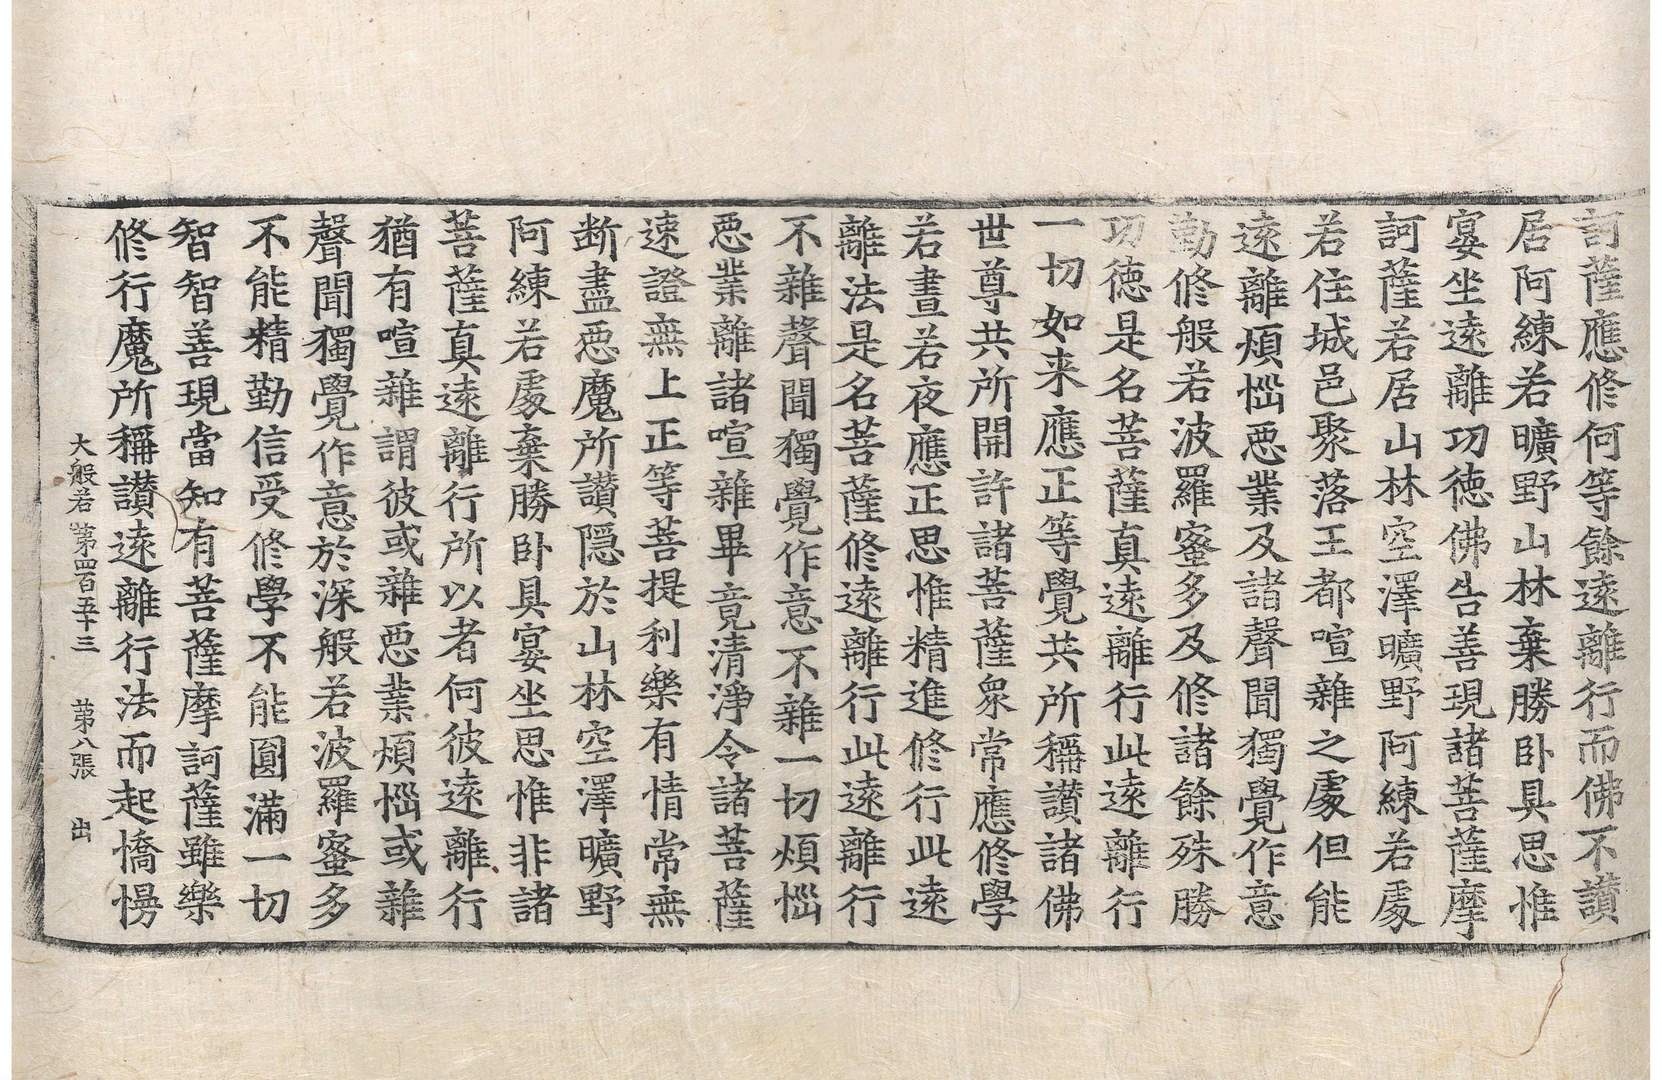 訶薩應修何等餘遠離行而佛不讃
居阿練若曠野山林棄勝卧具思惟
宴坐遠離功徳佛告善現諸菩薩摩
訶薩若居山林空澤曠野阿練若處
若住城邑聚落王都喧雜之處但能
遠離煩惱惡業及諸聲聞獨覺作意
勤修般若波羅蜜多及修諸餘殊勝
功徳是名菩薩真遠離行此遠離行
一切如来應正等覺共所稱讃諸佛
世尊共所開許諸菩薩衆常應修學
若晝若夜應正思惟精進修行此遠
離法是名菩薩修遠離行此遠離行
不雜聲聞獨覺作意不雜一切煩惱
惡業離諸喧雜畢竟清淨令諸菩薩
速證無上正等菩提利樂有情常無
断盡惡魔所讃隠於山林空澤曠野
阿練若處棄勝卧具宴坐思惟非諸
菩薩真遠離行所以者何彼遠離行
猶有喧雜謂彼或雜惡業煩惱或雜
聲聞獨覺作意於深般若波羅蜜多
不能精勤信受修學不能圓滿一切
智智善現當知有菩薩摩訶薩雖樂
修行魔所稱讃遠離行法而起憍慢
大般若 第四百五十三 第八張 出